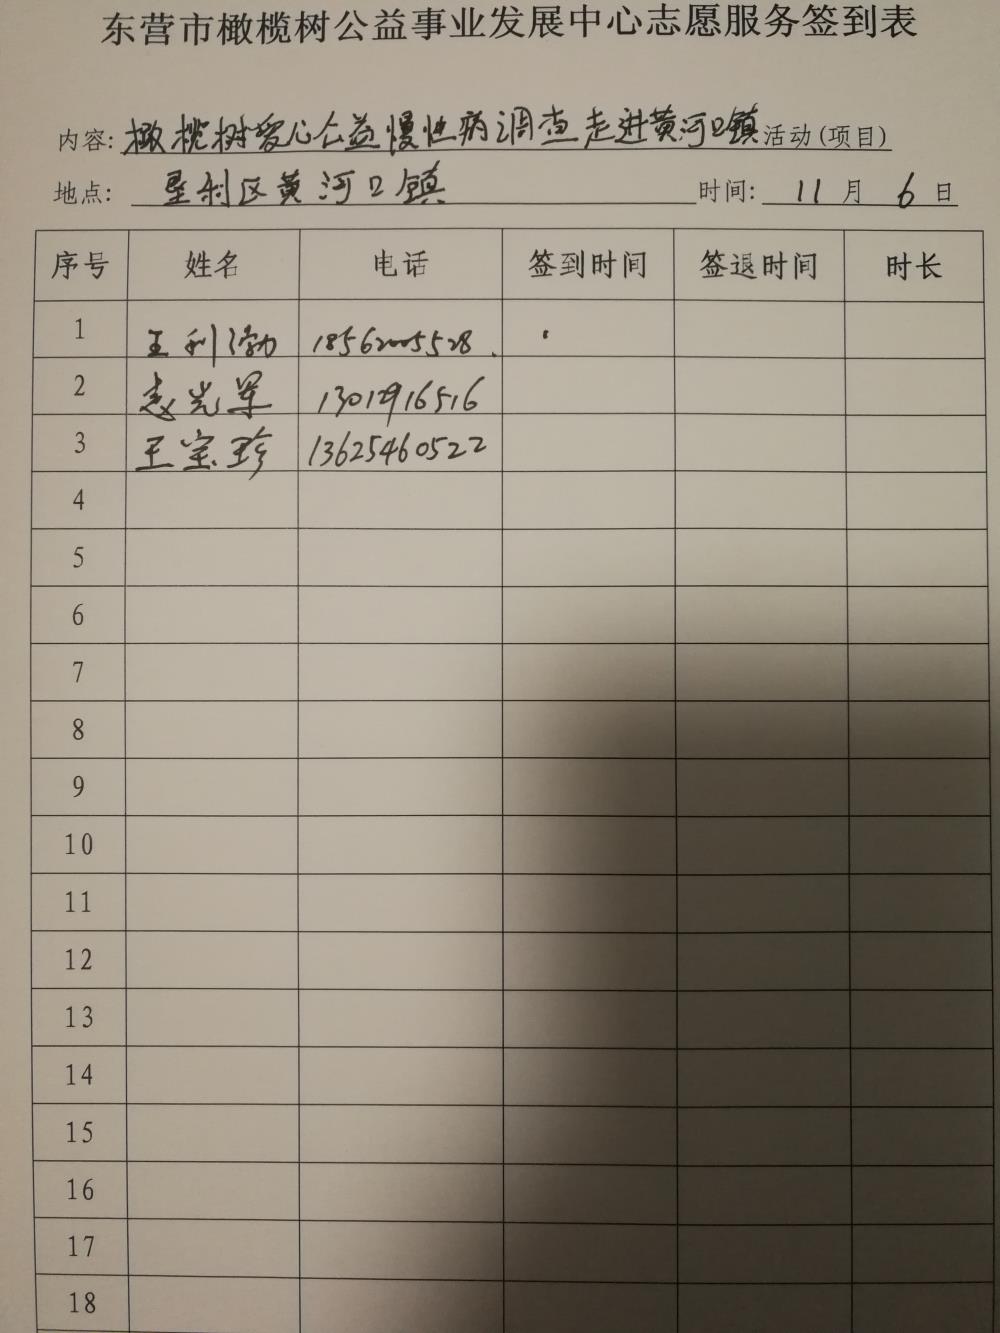 东营市橄榄树公益事业发展中心志愿服务签到表
内容: 橄榄树爱心公益慢性病调查走进黄河口镇活动(项目)
地点: 垦利区黄河口镇 时间: 11月6日
序号 姓名 电话 签到时间 签退时间 时长
1 王利渤 18562005528
2 光军 13012916516
3 王宝珍 13625460522
4
5
6
7
8
9
10
11
12
13
14
15
16
17
18